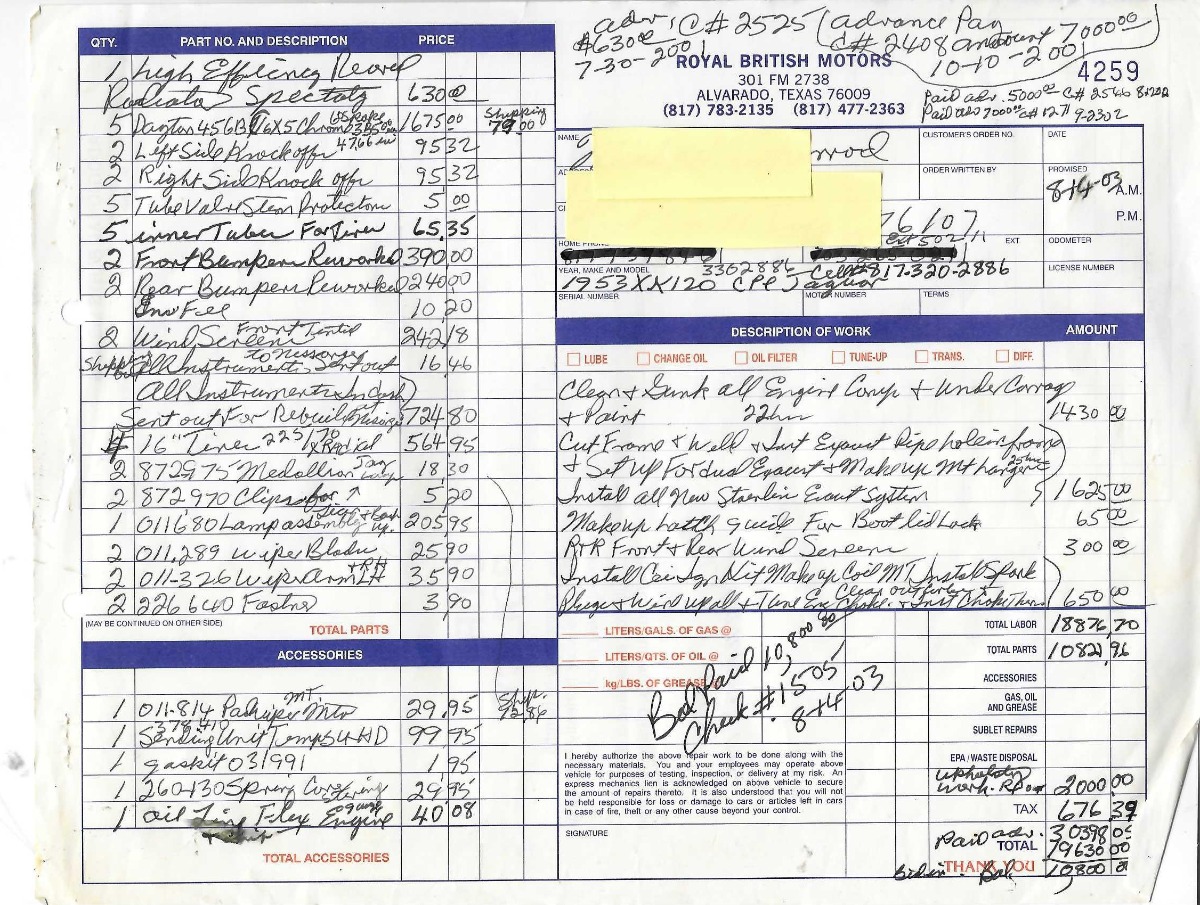 adv. C# 2525 (advance Pay
$630.00 C# 2408 amount 7000.00
7-30-2001 10-10-2001
ROYAL BRITISH MOTORS
301 FM 2738
ALVARADO, TEXAS 76009
(817) 783-2135 (817) 477-2363
4259
Paid adv. 5000.00 C# 2546
Paid adv 7000.00 C# 1271 9-2302
QTY. PART NO. AND DESCRIPTION PRICE
1 high Efficincy Recored
Radiator Spectalty 630.00
5 Dayton 456B 16X5 Chrom 1675.00 Shipping 79.00
2 Left Side Knock offs 95 32
2 Right Side Knock offs 95 32
5 Tube Valve Stem Protectors 5 00
5 inner Tubes For Tires 65.35
2 Front Bumpers Reworked 390 00
2 Rear Bumpers Reworked 2240 00
Env Fee 10 20
2 Wind Screens Front Tinted 242 18
All Instruments Sent out 16 46
All Instruments In dash
Sent out For Rebuild 724 80
4 16" Tires 225/70 Radial 564 95
2 872975 Medallion 18 30
2 872970 Clips for ↑ 5 20
1 011680 Lamp assembly 205 95
2 011,289 Wiper Blades 25 90
2 011-326 Wiper Arm LH + RH 35 90
2 226640 Fastner 3 90
(MAY BE CONTINUED ON OTHER SIDE) TOTAL PARTS
ACCESSORIES
1 011-814 29.95 Ship. 12.86
1 Sending Unit Temp 99 95
1 gaskit 031991 1 95
1 260-130 Spring 29 95
1 oil Line Flex Engine 40 08
TOTAL ACCESSORIES
NAME
CUSTOMER'S ORDER NO.
DATE
ORDER WRITTEN BY
PROMISED
8-14-03 A.M.
P.M.
76107
HOME PHONE
Ext 502
EXT.
ODOMETER
YEAR, MAKE AND MODEL
3362886
Cell# 817-320-2886
1953 XK120 CPE Jaguar
LICENSE NUMBER
SERIAL NUMBER
MOTOR NUMBER
TERMS
DESCRIPTION OF WORK AMOUNT
LUBE CHANGE OIL OIL FILTER TUNE-UP TRANS. DIFF.
Clean & Gunk all Engine Comp & Under Carrag
& Paint 22hrs 1430 00
Cut Frame & Weld & Inst Exaust Pipe hole in frame
& Set Up For dual Exaust & Makeup Mt hangers 25hrs
Install all New Stainlin Exaust System 1625 00
Makeup Latch guide For Boot lid Lock 65 00
R+R Front & Rear Wind Screens 300 00
Install Kit Makeup Coil MT Install Spark
Plugs 650 00
LITERS/GALS. OF GAS @
LITERS/QTS. OF OIL @
kg/LBS. OF GREASE @
Bal Paid 10,800 00
Check # 1505
8-14-03
TOTAL LABOR 18876,70
TOTAL PARTS 10821,96
ACCESSORIES
GAS, OIL AND GREASE
SUBLET REPAIRS
EPA / WASTE DISPOSAL
upholsty work 2000 00
TAX 676.39
Paid adv. 30398 05
TOTAL 19630 00
THANK YOU Bal 10800
I hereby authorize the above repair work to be done along with the
necessary materials. You and your employees may operate above
vehicle for purposes of testing, inspection, or delivery at my risk. An
express mechanics lien is acknowledged on above vehicle to secure
the amount of repairs thereto. It is also understood that you will not
be held responsible for loss or damage to cars or articles left in cars
in case of fire, theft or any other cause beyond your control.
SIGNATURE